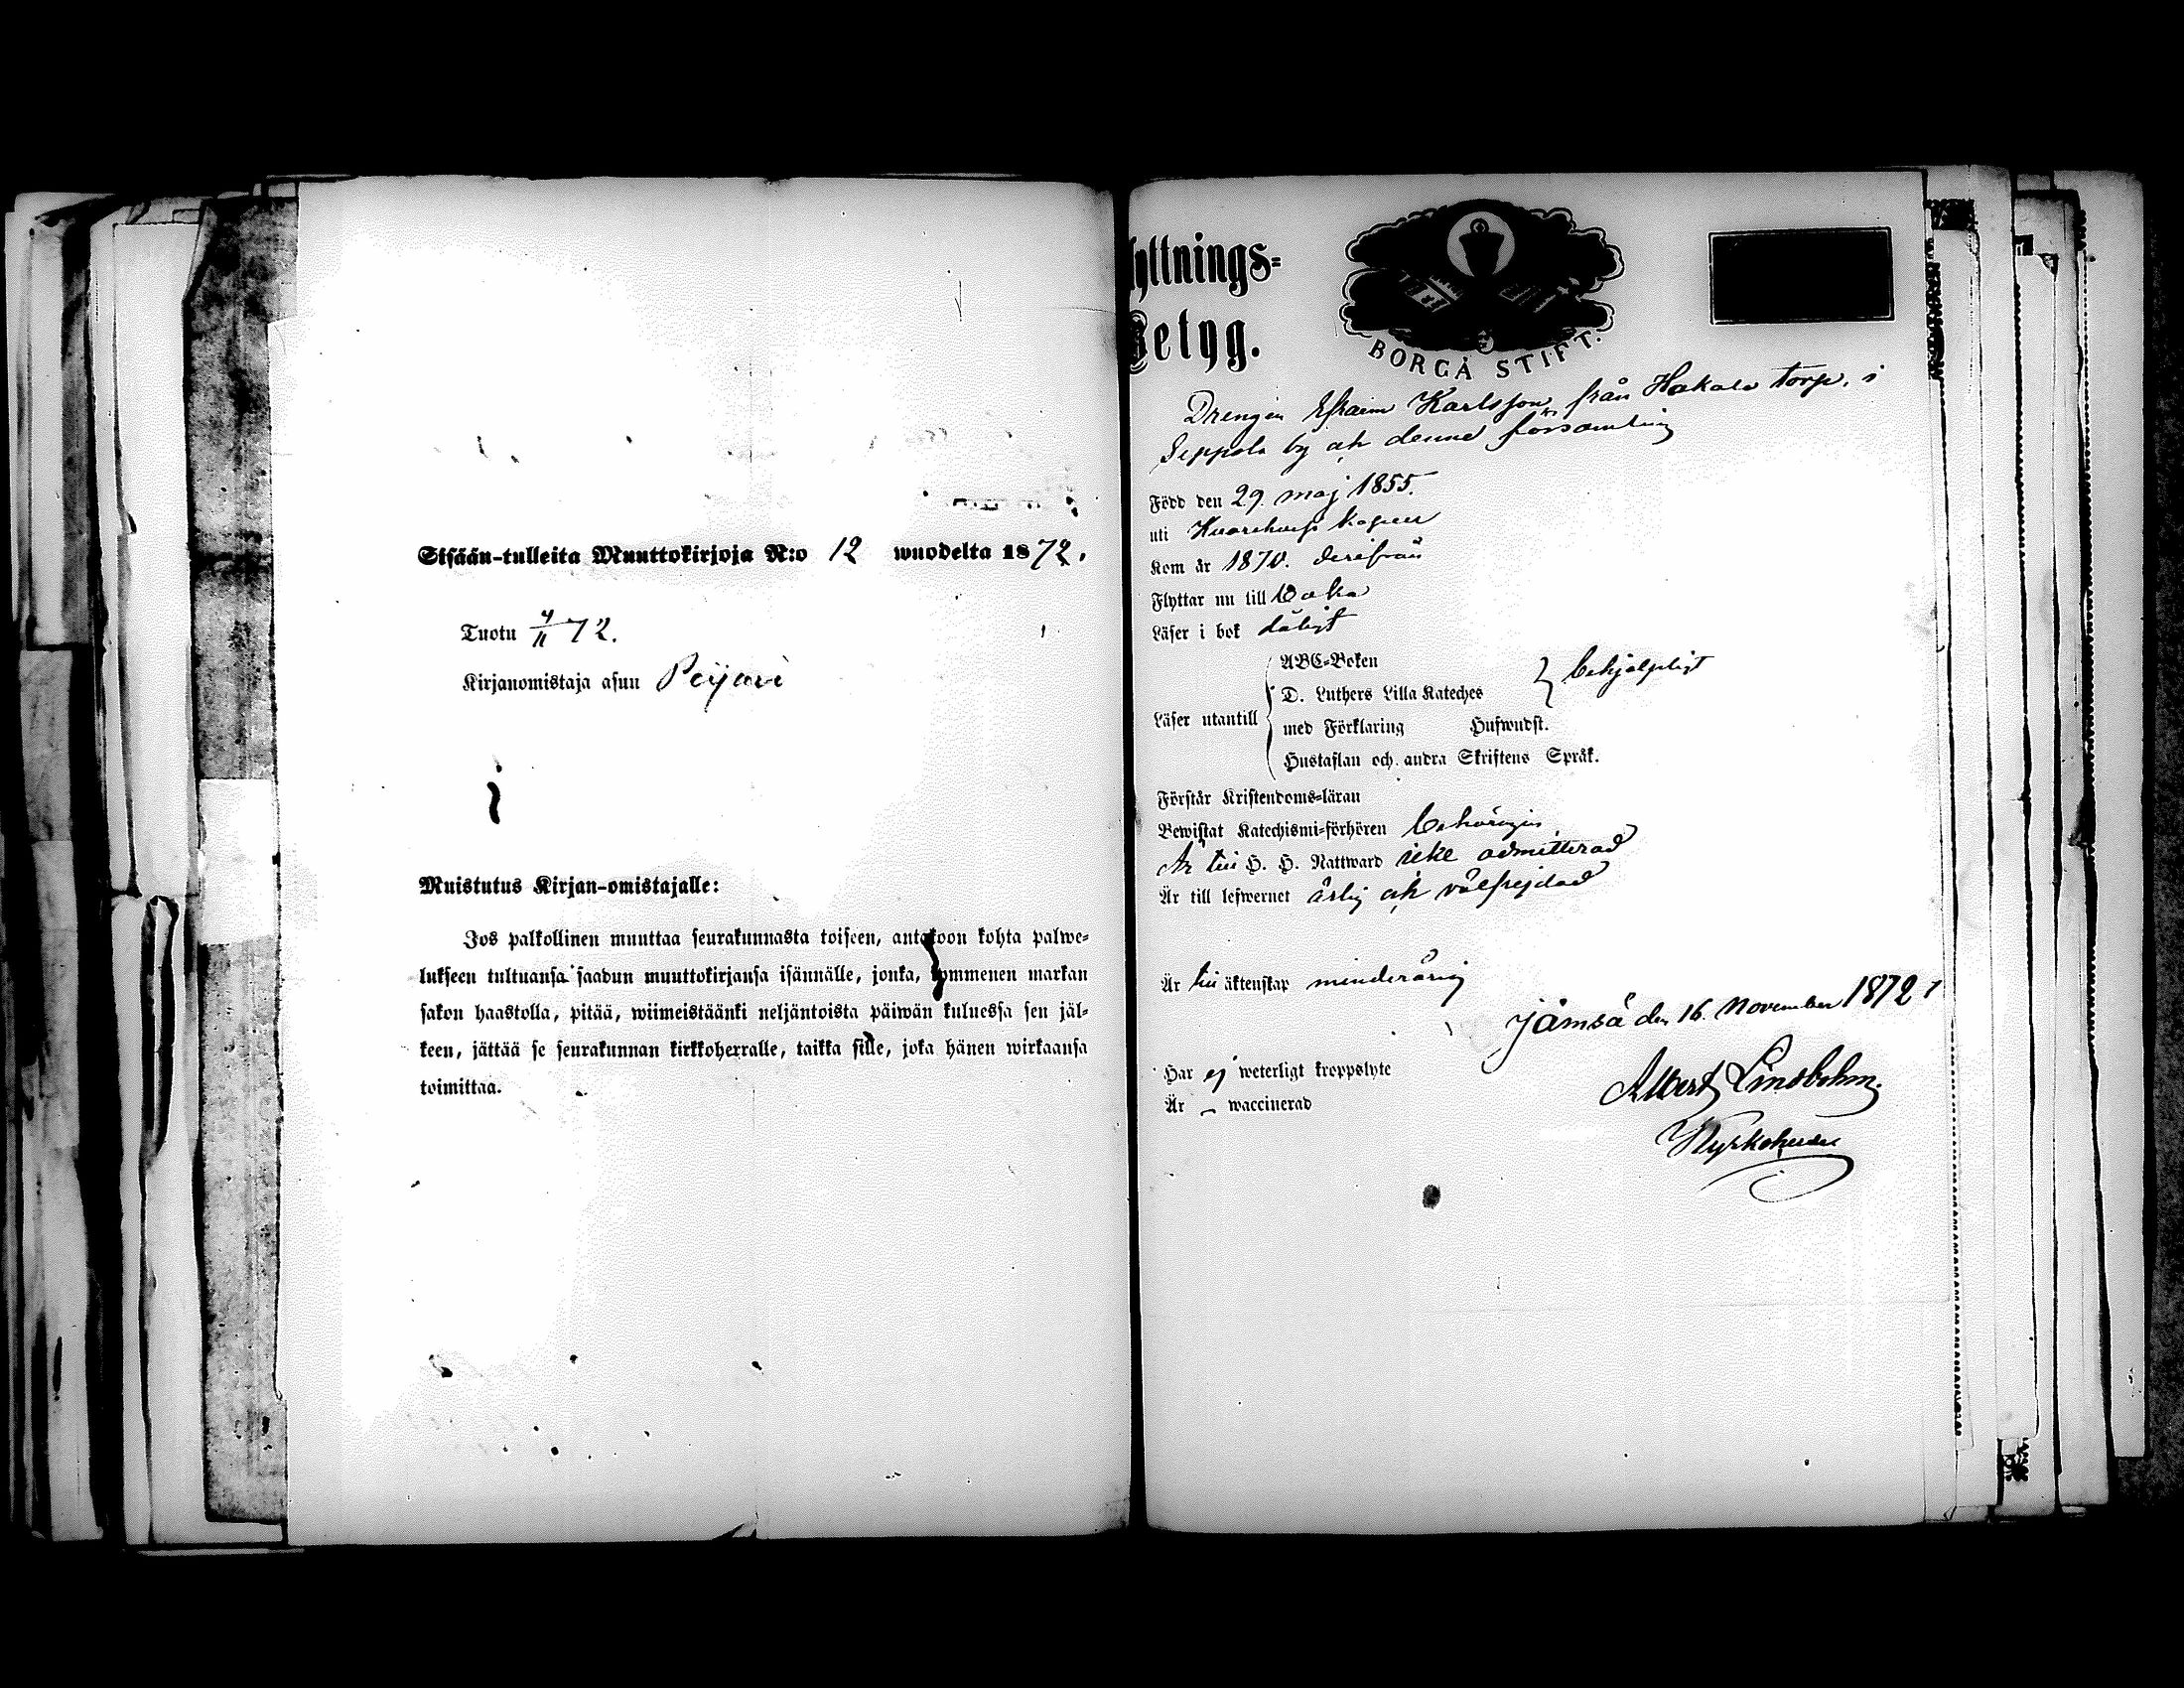 Sisään-tulleita Muuttokirjoja N:o 12 wuodelta 1872.
Tuotu 4/11 72.
Kirjanomistaja asuu Peijari
Muistutus Kirjan-omistajalle:
Jos palkollinen muuttaa seurakunnasta toiseen, antakoon kohta palwe-
lukseen tultuansa saadun muuttokirjansa isännälle, jonka, kymmenen markan
sakon haastolla, pitää, wiimeistäänki neljäntoista päiwän kuluessa sen jäl-
keen, jättää se seurakunnan kirkkoherralle, taikka sille, joka hänen wirkaansa
toimittaa.
lyttnings-
Betyg.
BORGÅ STIFT.
Drengen Efraim Karlsson från Hakala torp, i
Seppola by och denne församling
Född den 29. maj 1855.
uti kapell
Kom år 1870. derifrån
Flyttar nu till
Läser i bok dåligt
ABC-Boken
D. Luthers Lilla Kateches } behjelpligt
Läser utantill
med Förklaring Hufwudst.
Hustaflan och andra Skriftens Språk.
Förstår Kristendoms-läran
Bewistat Katechismi-förhören behörigen
Är till H. H. Nattward icke admitterad
Är till lefwernet ärlig och välfrejdad
Är till äktenskap minderårig
Jämsä den 16. November 1872
Har ej weterligt kroppslyte
Är – waccinerad
Albert Lindbohm.
Kyrkoherde